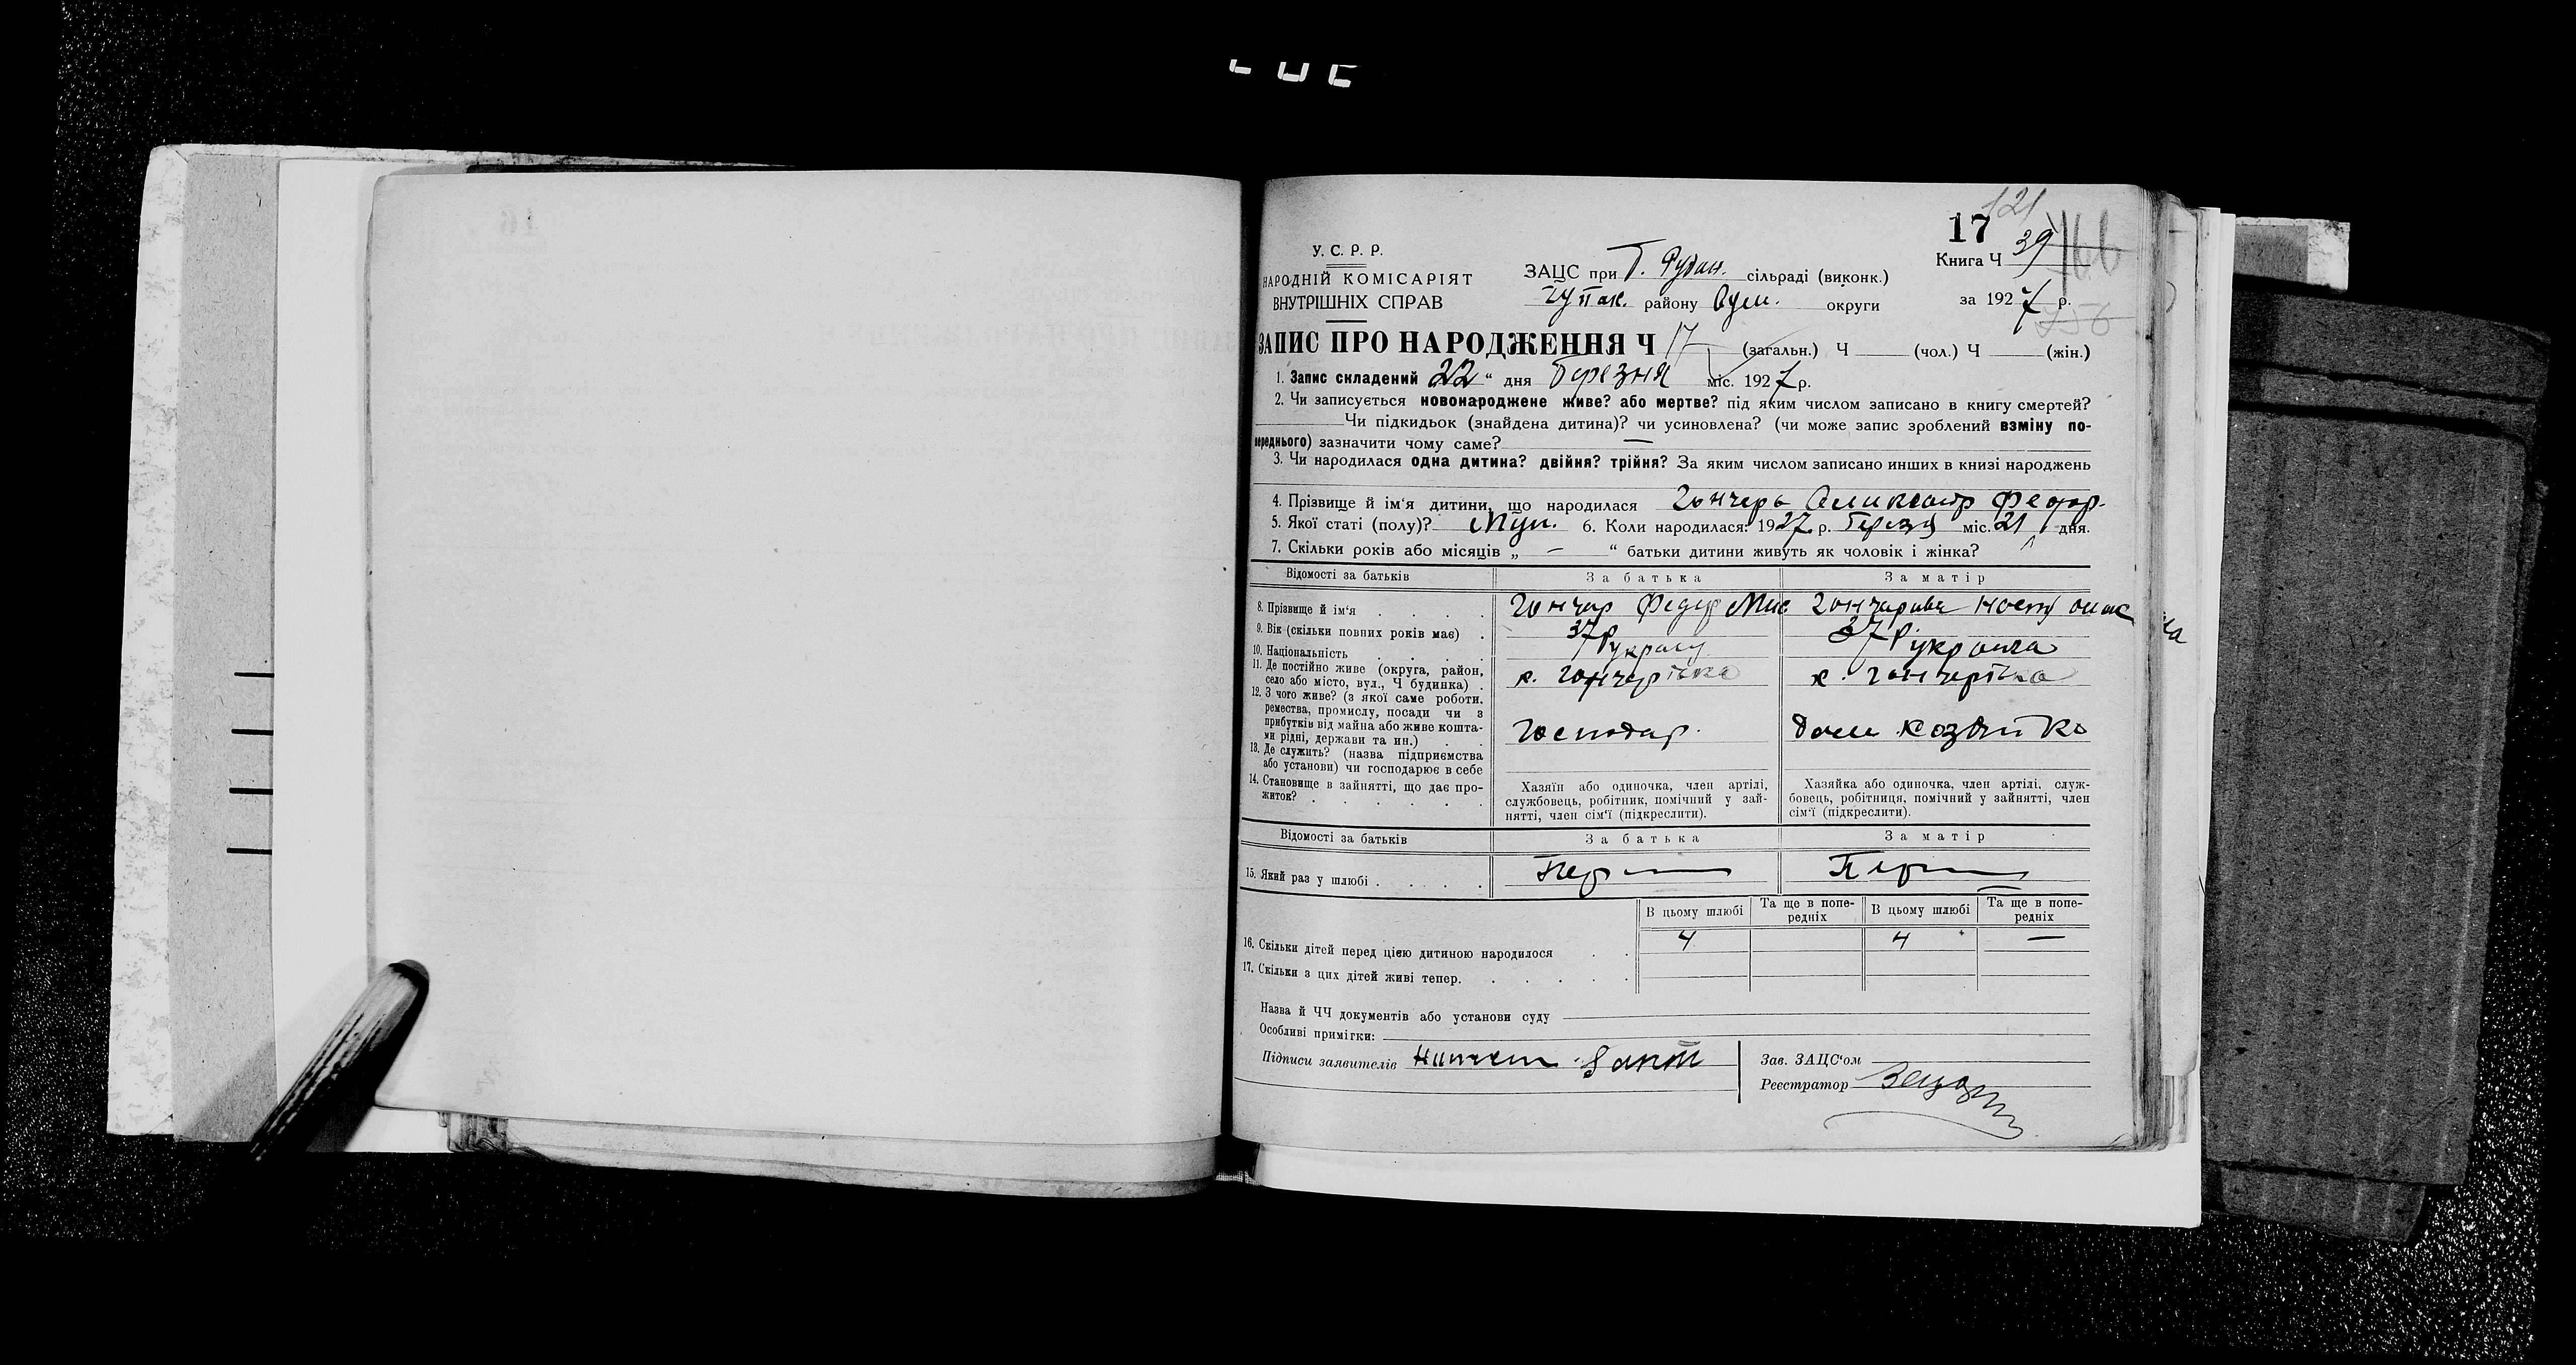 121
17
У. С. Р. Р.
НАРОДНІЙ КОМІСАРІЯТ
ВНУТРІШНІХ СПРАВ
ЗАЦС при сільраді (виконк.)
району Сум. округи
Книга Ч 39
166
за 1927 р.
ЗАПИС ПРО НАРОДЖЕННЯ Ч 17 (загальн.) Ч (чол.) Ч (жін.)
1. Запис складений 22 “ дня Березня міс. 1927 р.
2. Чи записується новонароджене живе? або мертве? під яким числом записано в книгу смертей?
Чи підкидьок (знайдена дитина)? чи усиновлена? (чи може запис зроблений взміну по-
переднього) зазначити чому саме? —
3. Чи народилася одна дитина? двійня? трійня? За яким числом записано инших в книзі народжень
4. Прізвище й ім‘я дитини, що народилася Гончарь Федор.
5. Якої статі (полу)? 6. Коли народилася: 1927 р. міс. 21 дня.
7. Скільки років або місяців „ — “ батьки дитини живуть як чоловік і жінка?
Відомості за батьків За батька За матір
8. Прізвище й ім‘я . . . . Гончар Федір Мис
9. Вік (скільки повних років має) . 37 р 37 р
10. Національність . . . .
11. Де постійно живе (округа, район,
село або місто, вул., Ч будинка) . х. Гончарівка х. Гончарівка
12. З чого живе? (з якої саме роботи,
ремества, промислу, посади чи з
прибутків від майна або живе кошта-
ми рідні, держави та ин.) . . Господар.
13. Де служить? (назва підприємства
або установи) чи господарює в себе
14. Становище в зайнятті, що дає про-
житок? . . . . . .
Хазяїн або одиночка, член артілі,
службовець, робітник, помічний у зай-
нятті, член сім‘ї (підкреслити).
Хазяйка або одиночка, член артілі, служ-
бовець, робітниця, помічний у зайнятті, член
сім‘ї (підкреслити).
Відомості за батьків За батька За матір
15. Який раз у шлюбі . . . . .
В цьому шлюбі Та ще в попе-редніх В цьому шлюбі Та ще в попе-редніх
16. Скільки дітей перед цією дитиною народилося . . 4 4 —
17. Скільки з цих дітей живі тепер. . . . . .
Назва й ЧЧ документів або установи суду
Особливі примітки:
Підписи заявителів
Зав. ЗАЦС‘ом
Реєстратор